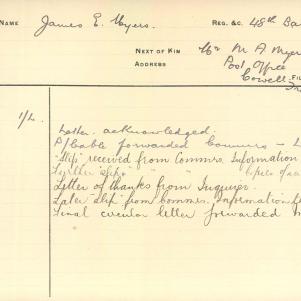 NAME James E. Myers. REG. &C. 48th Ba
NEXT OF KIN Mr M A Myer
ADDRESS Post Office
Cowell
1/L. Letter acknowledged.
P/Cable forwarded Commrs
"Slip" received from Commrs. Information
Further slip " "
Letter of thanks from Inquirer.
Later "slip" from Commrs. Information
Final circular letter forwarded